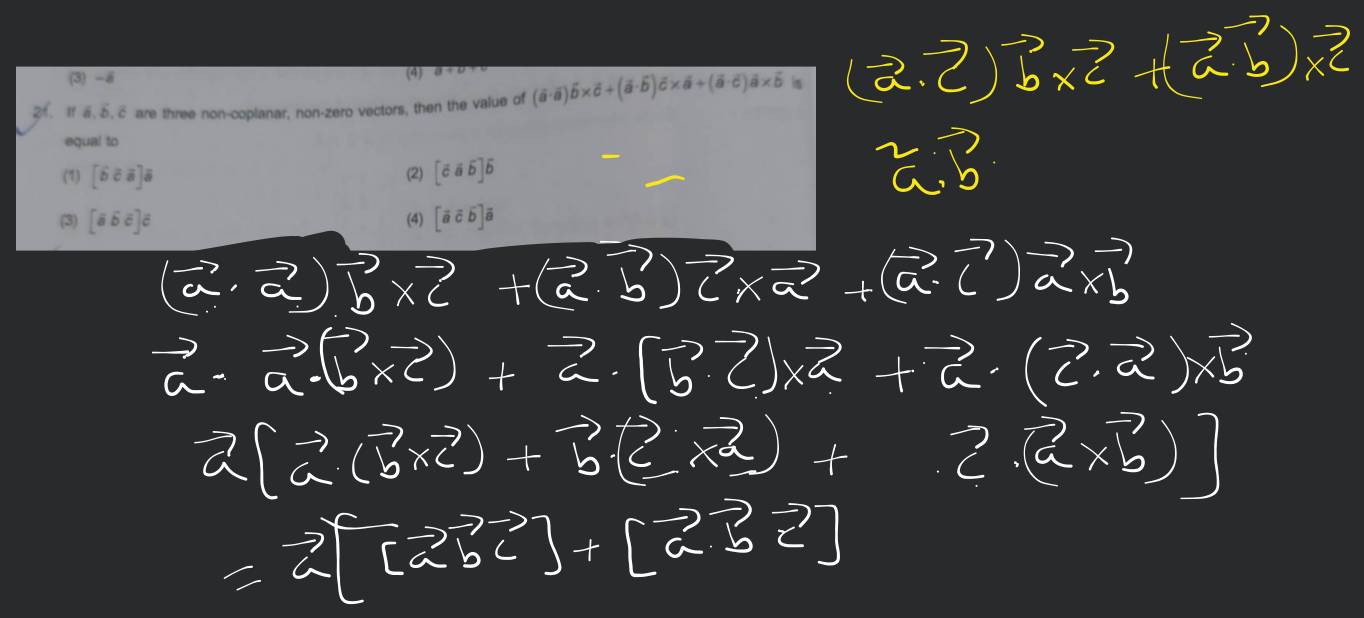 (3) -ā
(4) ā+b̄+c̄
21. If ā, b̄, c̄ are three non-coplanar, non-zero vectors, then the value of (ā·ā)b̄×c̄+(ā·b̄)c̄×ā+(ā·c̄)ā×b̄ is
equal to
(1) [b̄ c̄ ā]ā
(2) [c̄ ā b̄]b̄
(3) [ā b̄ c̄]c̄
(4) [ā c̄ b̄]ā
(a⃗.c⃗)b⃗×c⃗ +(a⃗.b⃗)×c⃗
a⃗.b⃗
(a⃗.a⃗)b⃗×c⃗ +(a⃗.b⃗)c⃗×a⃗ +(a⃗.c⃗)a⃗×b⃗
a⃗. a⃗.(b⃗×c⃗) + a⃗.[b⃗.c⃗)×a⃗ + a⃗.(c⃗.a⃗)×b⃗
a⃗[a⃗.(b⃗×c⃗) + b⃗.(c⃗×a⃗) + c⃗.(a⃗×b⃗)]
= a⃗[[a⃗b⃗c⃗]+[a⃗.b⃗ c⃗]